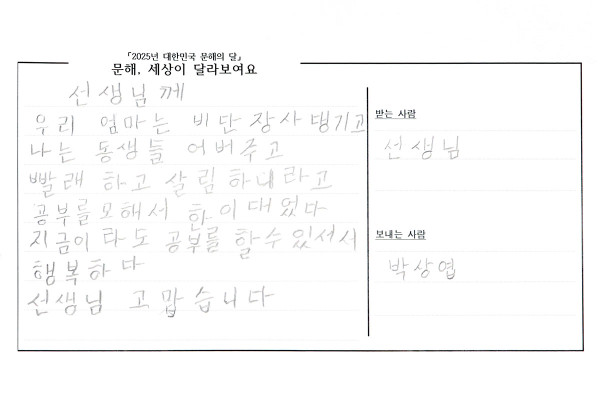 『2025년 대한민국 문해의 달』
문해, 세상이 달라보여요
선생님께
우리 엄마는 비단 장사 댕기고
나는 동생들 어버주고
빨래 하고 살림 하내라고
공부를 모해서 한이 대었다
지금이라도 공부를 할 수 있서서
행복하다
선생님 고맙습니다
받는 사람
선생님
보내는 사람
박상엽